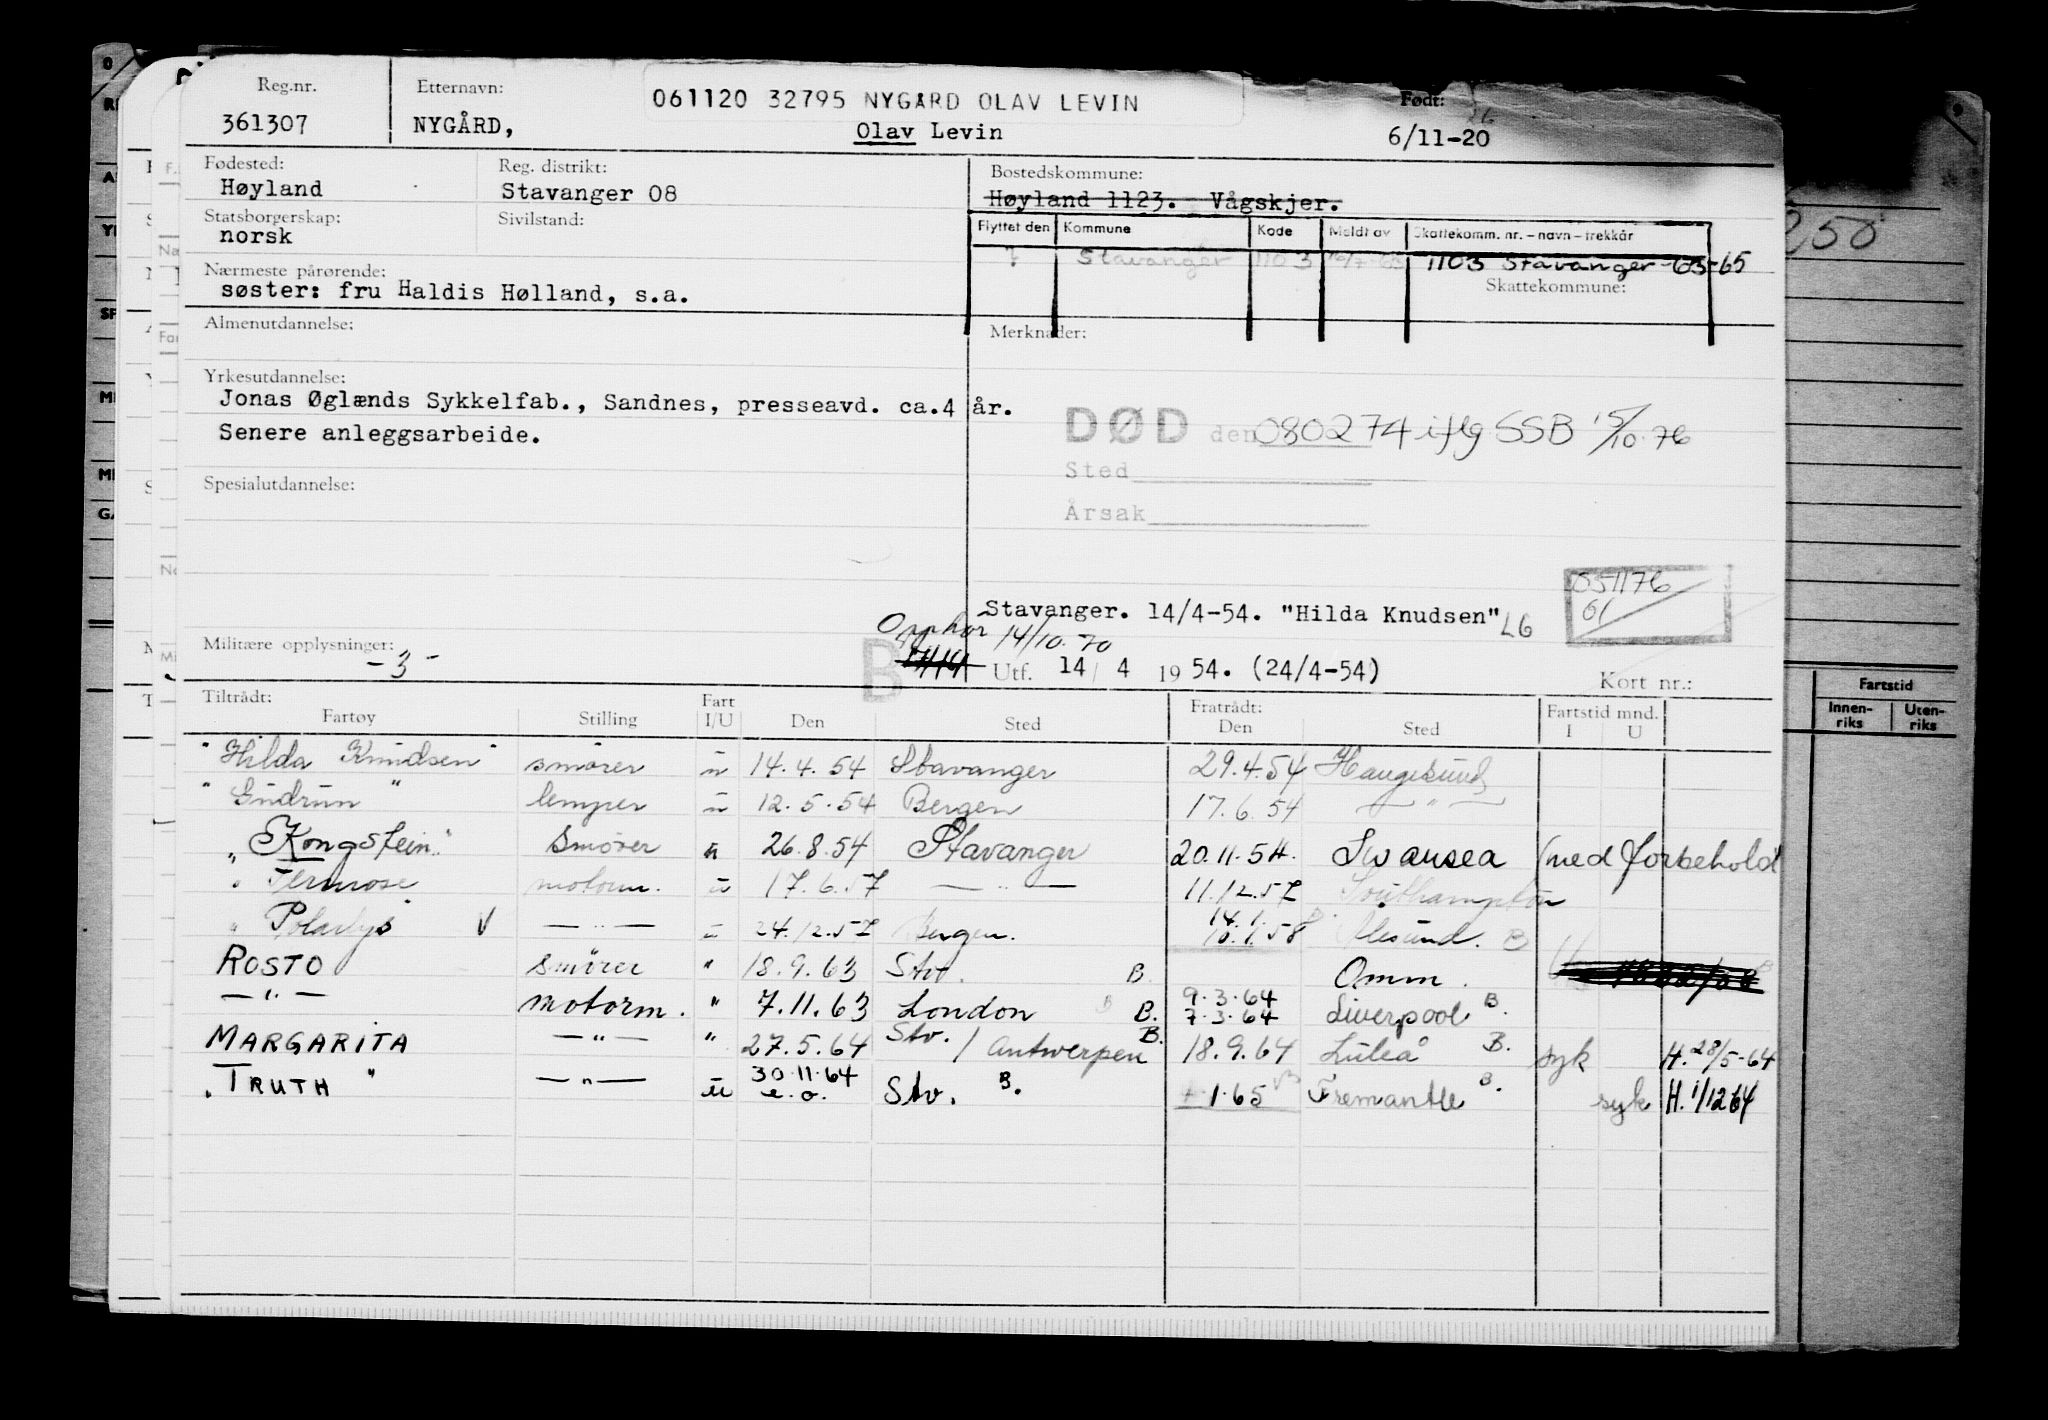 Reg.nr. Etternavn: 061120 32795 NYGÅRD OLAV LEVIN Født:
361307 NYGÅRD, Olav Levin 6/11-20
Fødested: Reg. distrikt: Bostedskommune:
Høyland Stavanger 08 Høyland 1123. Vågskjer.
Statsborgerskap: Sivilstand:
norsk
Flyttet den Kommune Kode Meldt av Skattekomm. nr. – navn – trekkår
Stavanger 1103 1103 Stavanger - 63-65
Skattekommune:
Nærmeste pårørende:
søster: fru Haldis Hølland, s.a.
Almenutdannelse: Merknader:
Yrkesutdannelse:
Jonas Øglænds Sykkelfab., Sandnes, presseavd. ca.4 år.
Senere anleggsarbeide.
DØD den 080274 iflg SSB 15/10.76
Sted
Årsak
Spesialutdannelse:
051176
61
Stavanger. 14/4-54. "Hilda Knudsen" LG
Opphør 14/10.70
Militære opplysninger: -3- B
Utf. 14/4 1954. (24/4-54) Kort nr.:
Tiltrådt: Fart Fratrådt: Fartstid mnd.
Fartøy Stilling I/U Den Sted Den Sted I U
"Hilda Knudsen" smører u 14.4.54 Stavanger 29.4.54 Haugesund
"Gudrun" lemper u 12.5.54 Bergen 17.6.54 — " —
"Kongstein" smører u 26.8.54 Stavanger 20.11.54. Swansea (med forbehold
motorm. u 17.6.57 — " — 11.12.57 Southampton
"Polarlys" V — " — u 24.12.57 Bergen. 14.1. 10.1.58 Ålesund. B
ROSTO smører " 18.9.63 Stv. B. Omm.
— " — motorm. " 7.11.63 London B. 9.3.64 7.3.64 Liverpool B.
MARGARITA — " — " 27.5.64 Stv. / Antwerpen B. 18.9.64 Luleå B. syk H. 28/5-64
"TRUTH" — " — u 30.11.64 e.o. Stv. B. 1.65 Fremantle B. syk H. 1/12 64
250
Fartstid
Innen-riks Uten-riks